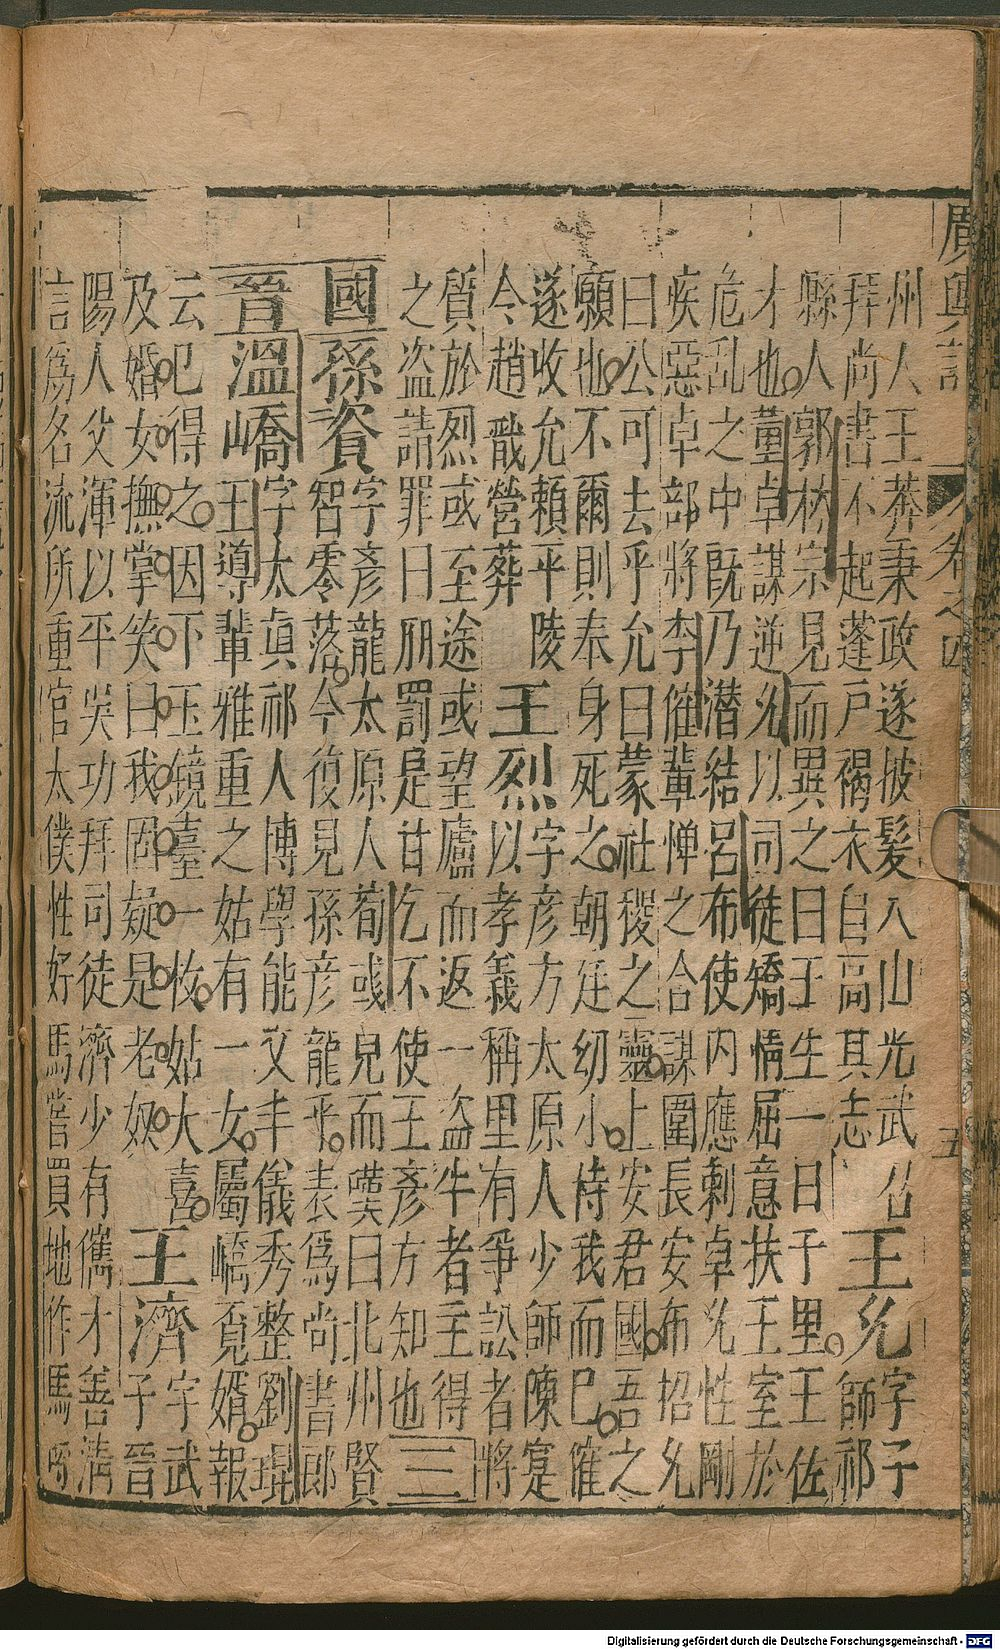 廣輿記 卷之四 五
州人王莽秉政遂披髮入山光武召
拜尚書不起蓬戶褐衣自高其志
王允
字子
師祁
縣人郭林宗見而異之曰王生一日千里王佐
才也董卓謀逆允以司徒矯情屈意扶王室於
危乱之中既乃潜結呂布使內應刺卓允性剛
疾惡卓部將李傕輩憚之合謀圍長安布招允
曰公可去乎允曰蒙社稷之靈上安君國吾之
願也不爾則奉身死之朝廷幼小恃我而已傕
遂收允賴平陵
令趙戩營葬
王烈
字彥方太原人少師陳寔
以孝義稱里有爭訟者將
質於烈或至途或望廬而返一盜牛者主得
之盜請罪曰刑罰是甘乞不使王彥方知也
三
國
孫資
字彥龍太原人荀彧見而嘆曰北州賢
智零落今復見孫彥龍乎表爲尚書郎
晉
溫嶠
字太眞祁人博學能文丰儀秀整劉琨
王導輩雅重之姑有一女屬嶠覓婿報
云已得之因下玉鏡臺一枚姑大喜
及婚女撫掌笑曰我固疑是老奴
王濟
字武
子晉
陽人父渾以平吳功拜司徒濟少有儁才善清
言爲名流所重官太僕性好馬嘗買地作馬埒
Digitalisierung gefördert durch die Deutsche Forschungsgemeinschaft - DFG